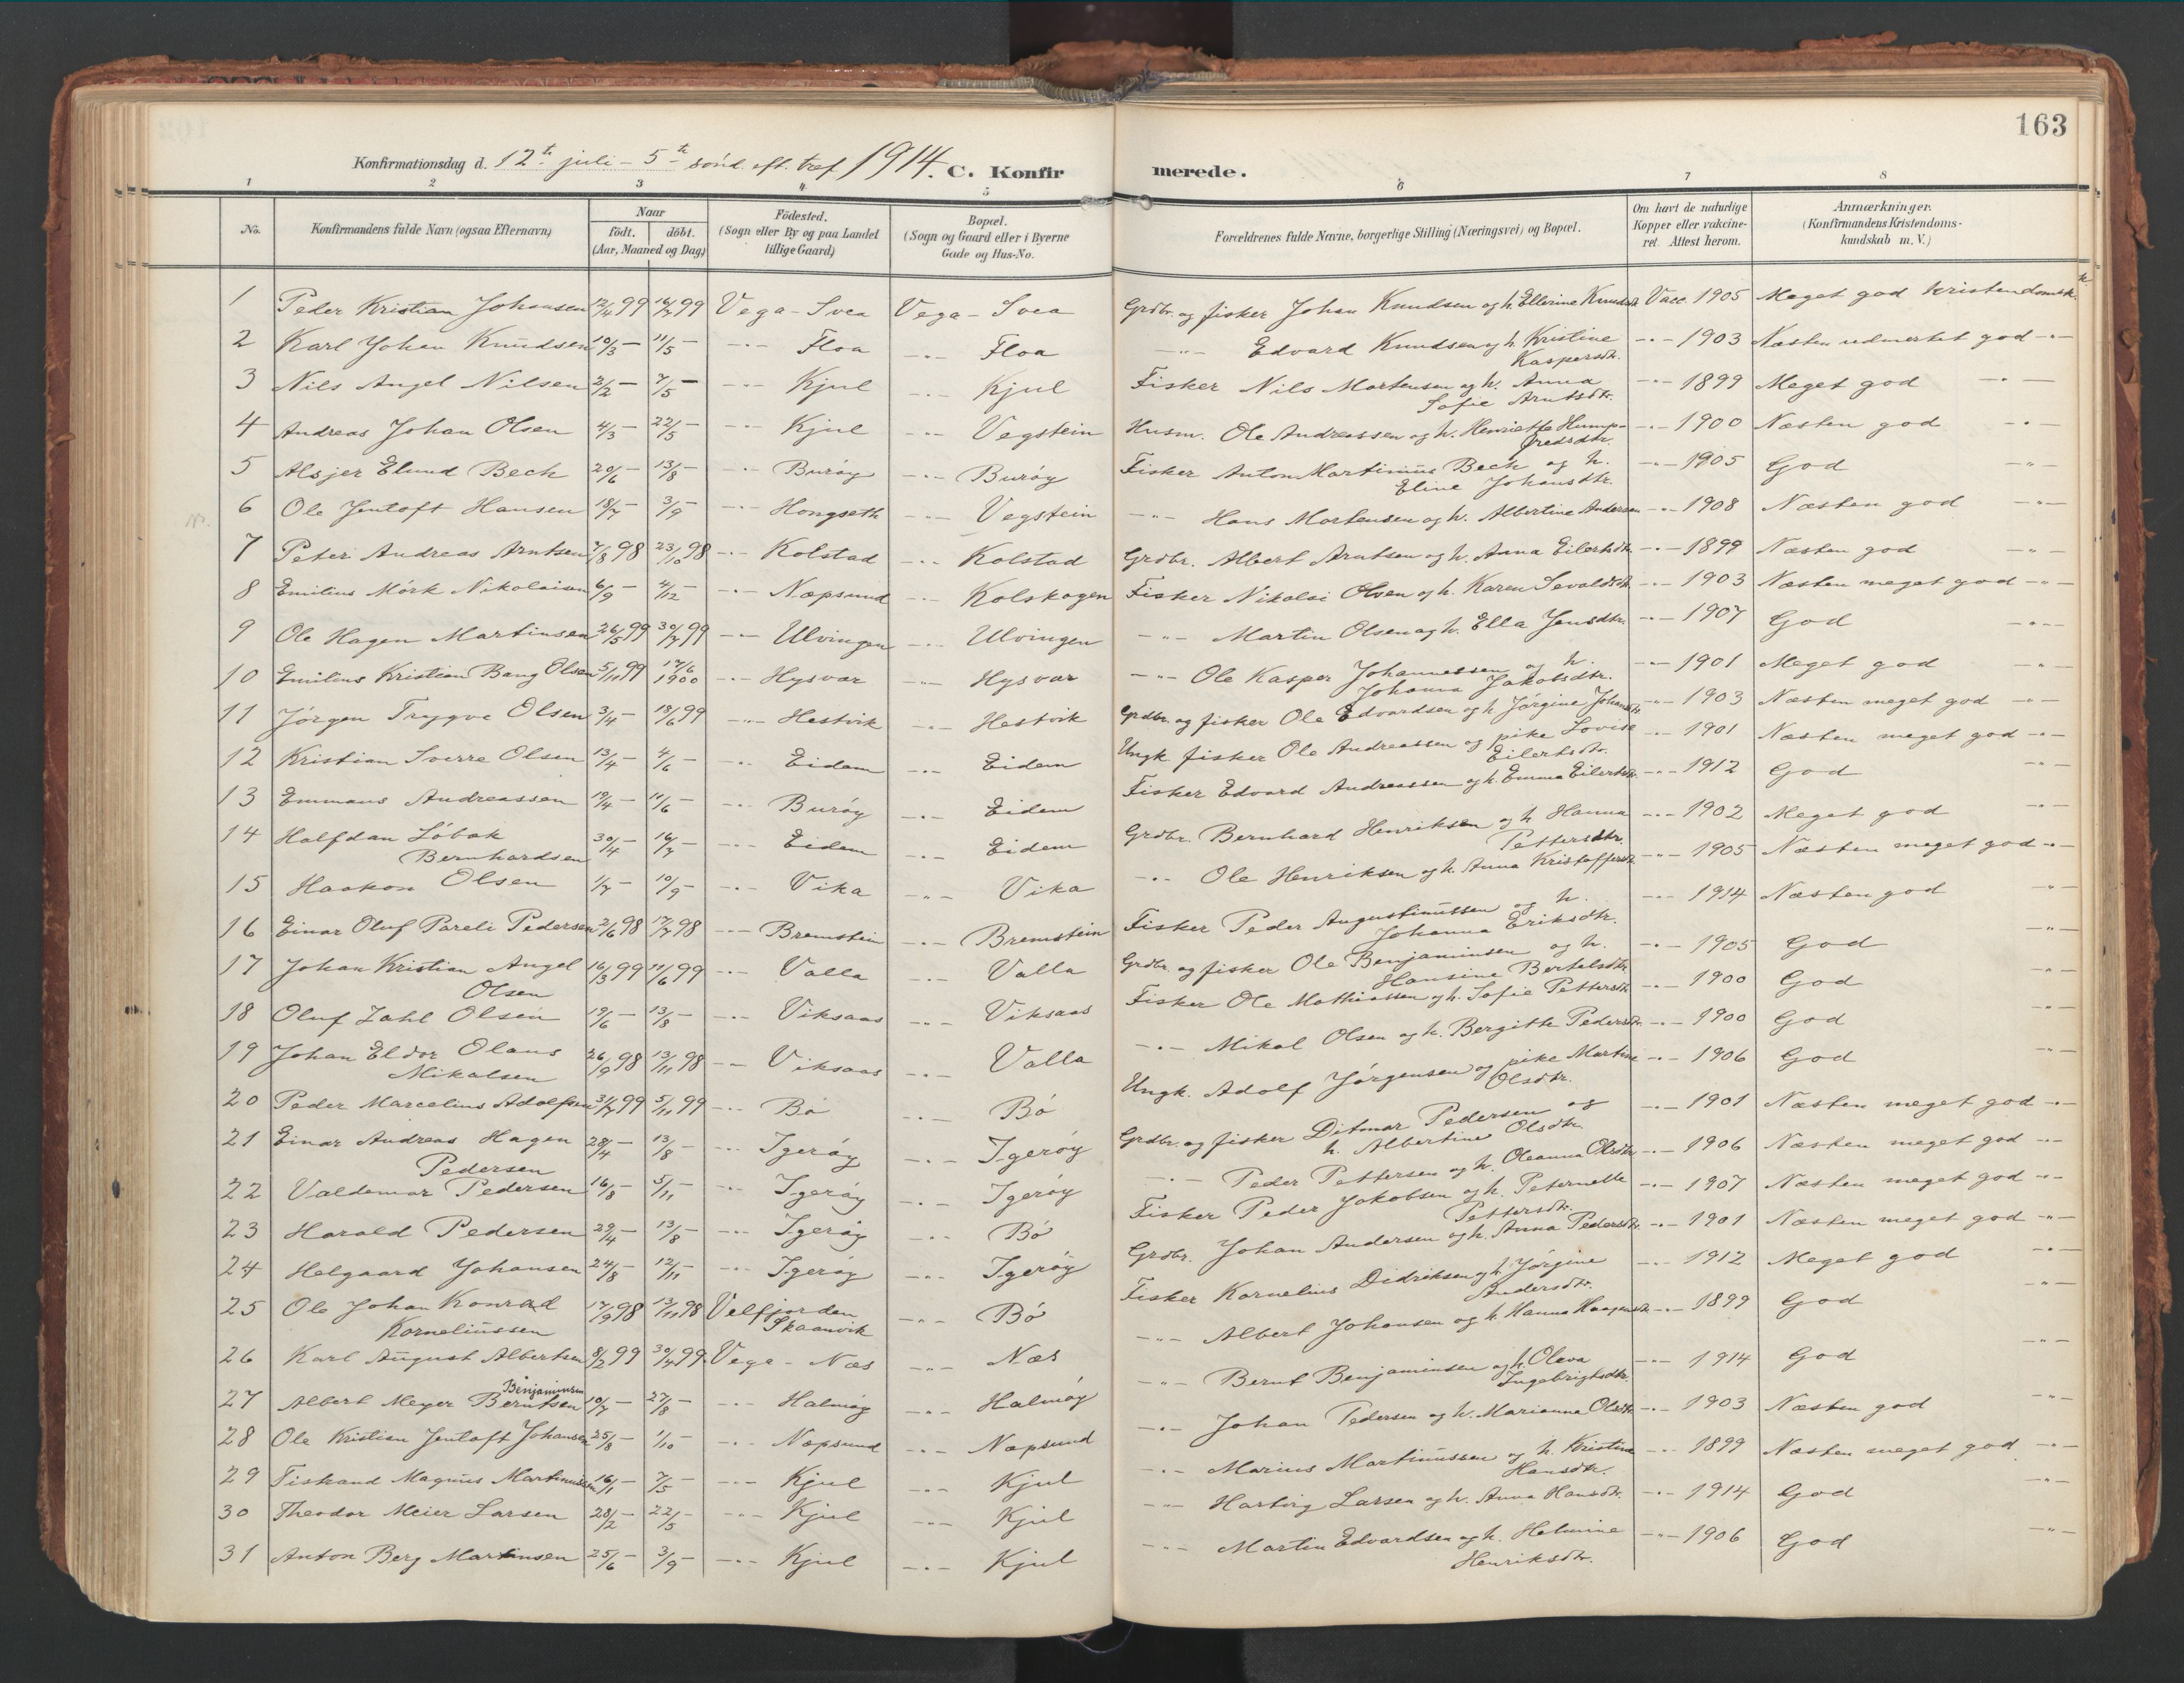 163
Konfirmationsdag d. 12te juli - 5te sönd. eft. tref. 1914. C. Konfirmerede.
1 2 3 4 5 6 7 8
No. Konfirmandens fulde Navn (ogsaa Efternavn) Naar födt. döbt. (Aar, Maaned og Dag) Födested. (Sogn eller By og paa Landet tillige Gaard) Bopæl. (Sogn og Gaard eller i Byerne Gade og Hus-No. Forældrenes fulde Navne, borgerlige Stilling (Næringsvei) og Bopæl. Om havt de naturlige Kopper eller vakcineret. Attest herom. Anmærkninger. (Konfirmandens Kristendomskundskab m. V.)
1 Peder Kristian Johansen 12/4 99 16/7 99 Vega - Svea Vega - Svea Grdbr. og fisker Johan Knudsen og h. Ellerine Knudsdtr. Vacc. 1905 Meget god kristendomsk.
2 Karl Johan Knudsen 10/3 - 11/5 - -"- Floa -"- Floa -"- Edvard Knudsen og h. Kristine Kaspersdtr. -"- 1903 Næsten udmerket god -"-
3 Nils Angel Nilsen 2/2 - 7/5 - -"- Kjul -"- Kjul Fisker Nils Martensen og h. Anna Sofie Arntsdtr. -"- 1899 Meget god -"-
4 Andreas Johan Olsen 4/3 - 22/5 - -"- Kjul -"- Vegstein Husm. Ole Andreassen og h. Henriette Humpfredsdtr. -"- 1900 Næsten god -"-
5 Alsjer Elund Bech 20/6 - 13/8 - -"- Buröy -"- Buröy Fisker Anton Martinius Bech og h. Eline Johansdtr. -"- 1905 God -"-
6 Ole Jentoft Hansen 18/7 - 3/9 - -"- Hongseth -"- Vegstein -"- Hans Mortensen og h. Albertine Andersen -"- 1908 Næsten god -"-
7 Peter Andreas Arntsen 7/8 98 23/10 98 -"- Kolstad -"- Kolstad Grdbr. Albert Arntsen og h. Anna Eilertsdtr. -"- 1899 Næsten god -"-
8 Emilius Mörk Nikolaisen 6/9 - 4/12 - -"- Næpsund -"- Kolskogen Fisker Nikolai Olsen og h. Karen Sevaldsdtr. -"- 1903 Næsten meget god -"-
9 Ole Hagen Martinsen 26/5 99 30/7 99 -"- Ulvingen -"- Ulvingen -"- Martin Olsen og h. Ella Jensdtr. -"- 1907 God -"-
10 Emilius Kristian Bang Olsen 5/11 99 17/6 1900 -"- Hysvær -"- Hysvær -"- Ole Kasper Johannessen og h. Johanna Jakobsdtr. -"- 1901 Meget god -"-
11 Jörgen Trygve Olsen 3/4 - 18/6 99 -"- Hestvik -"- Hestvik Grdbr. og fisker Ole Edvardsen og h. Jörgine Johansdtr. -"- 1903 Næsten meget god -"-
12 Kristian Sverre Olsen 13/4 - 4/6 - -"- Eidem -"- Eidem Ungk. fisker Ole Andreassen og pike Lovise Eilertsdtr. -"- 1901 Næsten meget god -"-
13 Emmaus Andreassen 19/4 - 11/6 - -"- Buröy -"- Eidem Fisker Edvard Andreassen og h. Emma Eilertsdtr. -"- 1912 God -"-
14 Halfdan Löbak Bernhardsen 30/4 - 16/7 - -"- Eidem -"- Eidem Grdbr. Bernhard Henriksen og h. Hanna Pettersdtr. -"- 1902 Meget god -"-
15 Haakon Olsen 1/7 - 10/9 - -"- Vika -"- Vika -"- Ole Henriksen og h. Anna Kristoffersdtr. -"- 1905 Næsten meget god -"-
16 Einar Oluf Pareli Pedersen 2/6 98 17/7 98 -"- Bremstein -"- Bremstein Fisker Peder Augustinussen og h. Johanna Eriksdtr. -"- 1914 Næsten god -"-
17 Johan Kristian Angel Olsen 16/3 99 11/6 99 -"- Valla -"- Valla Grdbr. og fisker Ole Benjaminsen og h. Hansine Bertelsdtr. -"- 1905 God -"-
18 Oluf Zahl Olsen 19/6 - 13/8 - -"- Viksaas -"- Viksaas Fisker Ole Mathiassen og h. Sofie Pettersdtr. -"- 1900 God -"-
19 Johan Eldor Olaus Mikalsen 26/9 98 13/11 98 -"- Viksaas -"- Valla -"- Mikal Olsen og h. Bergitte Pedersdtr. -"- 1900 God -"-
20 Peder Marcelius Adolfsen 31/7 99 5/11 99 -"- Bö -"- Bö Ungk. Adolf Jörgensen og pike Martine Olsdtr. -"- 1906 God -"-
21 Einar Andreas Hagen Pedersen 28/4 - 13/8 - -"- Igeröy -"- Igeröy Grdbr. og fisker Ditmar Pedersen og h. Albertine Olsdtr. -"- 1901 Næsten meget god -"-
22 Valdemar Pedersen 16/8 - 5/11 - -"- Igeröy -"- Igeröy -"- Peder Pettersen og h. Oleanna Olsdtr. -"- 1906 Næsten meget god -"-
23 Harald Pedersen 29/4 - 13/8 - -"- Igeröy -"- Bö Fisker Peder Jakobsen og h. Peternelle Pettersdtr. -"- 1907 Næsten meget god -"-
24 Helgaard Johansen 24/8 - 12/11 - -"- Igeröy -"- Igeröy Grdbr. Johan Andersen og h. Anna Pedersdtr. -"- 1901 Næsten meget god -"-
25 Ole Johan Konrad Korneliussen 17/9 98 13/11 98 Velfjorden Skaanvik -"- Bö Fisker Kornelius Didriksen og h. Jörgine Andersdtr. -"- 1912 Meget god -"-
26 Karl August Albertsen 8/2 99 30/4 99 Vega - Næs -"- Næs -"- Albert Johansen og h. Hanna Haagensdtr. -"- 1899 God -"-
27 Albert Meyer Berntsen Benjaminsen 10/7 - 27/8 - -"- Halmöy -"- Halmöy -"- Bernt Benjaminsen og h. Oleva Ingebrigtsdtr. -"- 1914 God -"-
28 Ole Kristian Jentoft Johansen 25/8 - 1/10 - -"- Næpsund -"- Næpsund -"- Johan Pedersen og h. Marianna Olsdtr. -"- 1903 Næsten god -"-
29 Fiskand Magnus Martinussen 16/1 - 7/5 - -"- Kjul -"- Kjul -"- Marius Martinussen og h. Kristine Hansdtr. -"- 1899 Næsten meget god -"-
30 Theodor Meier Larsen 28/2 - 22/5 - -"- Kjul -"- Kjul -"- Hartvig Larsen og h. Anna Hansdtr. -"- 1914 God -"-
31 Anton Berg Martinsen 25/6 - 3/9 - -"- Kjul -"- Kjul -"- Martin Edvardsen og h. Helmine Henriksdtr. -"- 1906 God -"-